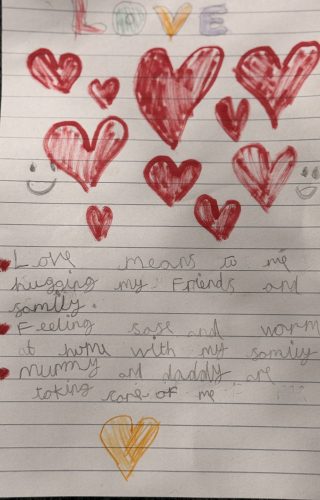 LOVE
Love means to me
hugging my Friends and
samily.
Feeling sase and worm
at home with my samily
mummy and daddy are
taking care of me